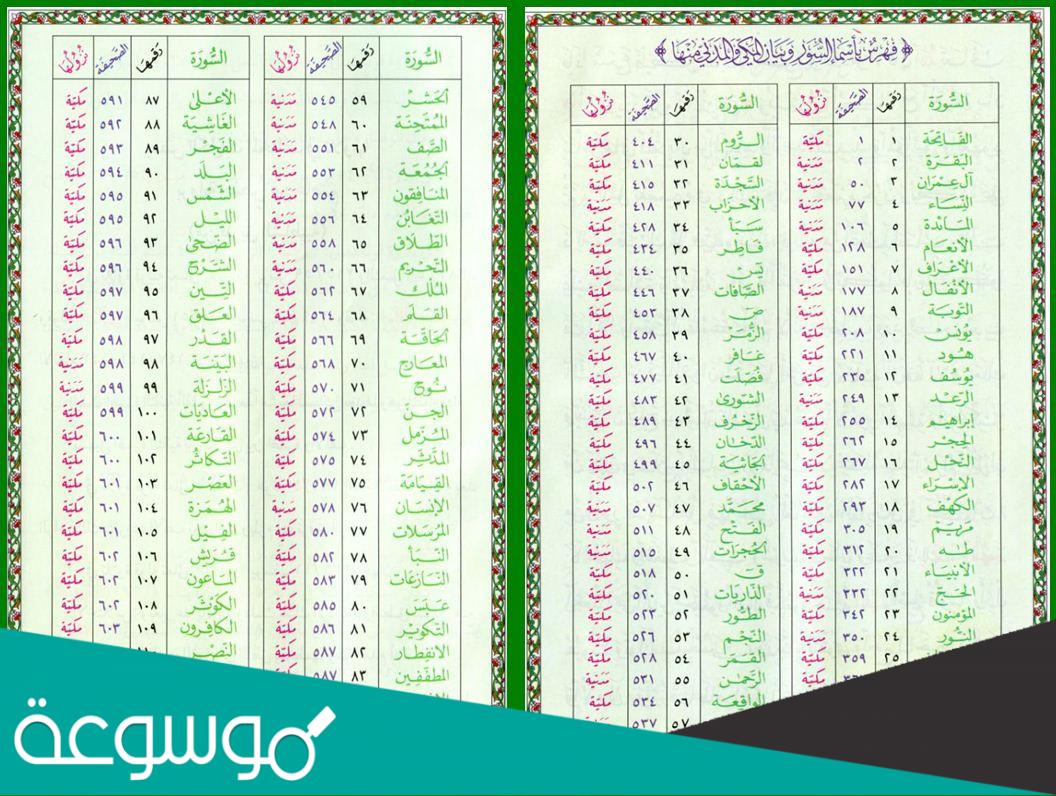 ﴿ فهرس بأسماء السور وبيان المكي والمدني منها ﴾
السُّورَة رقمها الصحيفة نزولها
الفَاتِحَة ١ ١ مكيّة
البَقَرَة ٢ ٢ مدنية
آل عِمرَان ٣ ٥٠ مدنية
النِّسَاء ٤ ٧٧ مدنية
المَائدة ٥ ١٠٦ مدنية
الأنعَام ٦ ١٢٨ مكيّة
الأعرَاف ٧ ١٥١ مكيّة
الأنفَال ٨ ١٧٧ مدنية
التوبَة ٩ ١٨٧ مدنية
يُونس ١٠ ٢٠٨ مكيّة
هُود ١١ ٢٢١ مكيّة
يُوسُف ١٢ ٢٣٥ مكيّة
الرّعد ١٣ ٢٤٩ مدنية
إبراهيم ١٤ ٢٥٥ مكيّة
الحِجر ١٥ ٢٦٢ مكيّة
النّحل ١٦ ٢٦٧ مكيّة
الإسرَاء ١٧ ٢٨٢ مكيّة
الكهف ١٨ ٢٩٣ مكيّة
مَريَم ١٩ ٣٠٥ مكيّة
طه ٢٠ ٣١٢ مكيّة
الأنبيَاء ٢١ ٣٢٢ مكيّة
الحَجّ ٢٢ ٣٣٢ مدنية
المؤمنون ٢٣ ٣٤٢ مكيّة
النُّور ٢٤ ٣٥٠ مدنية
٢٥ ٣٥٩ مكيّة
السُّورَة رقمها الصحيفة نزولها
الرُّوم ٣٠ ٤٠٤ مكيّة
لقمَان ٣١ ٤١١ مكيّة
السَّجْدَة ٣٢ ٤١٥ مكيّة
الأحزَاب ٣٣ ٤١٨ مدنية
سَبَأ ٣٤ ٤٢٨ مكيّة
فَاطِر ٣٥ ٤٣٤ مكيّة
يسٓ ٣٦ ٤٤٠ مكيّة
الصَّافات ٣٧ ٤٤٦ مكيّة
صٓ ٣٨ ٤٥٣ مكيّة
الزُّمَر ٣٩ ٤٥٨ مكيّة
غَافِر ٤٠ ٤٦٧ مكيّة
فُصّلَت ٤١ ٤٧٧ مكيّة
الشّورى ٤٢ ٤٨٣ مكيّة
الزّخرُف ٤٣ ٤٨٩ مكيّة
الدّخَان ٤٤ ٤٩٦ مكيّة
الجَاثيَة ٤٥ ٤٩٩ مكيّة
الأحْقاف ٤٦ ٥٠٢ مكيّة
محَمّد ٤٧ ٥٠٧ مدنية
الفَتْح ٤٨ ٥١١ مدنية
الحُجرَات ٤٩ ٥١٥ مدنية
قٓ ٥٠ ٥١٨ مكيّة
الذّاريَات ٥١ ٥٢٠ مكيّة
الطُّور ٥٢ ٥٢٣ مكيّة
النّجْم ٥٣ ٥٢٦ مكيّة
القَمَر ٥٤ ٥٢٨ مكيّة
الرَّحمٰن ٥٥ ٥٣١ مدنية
الواقِعَة ٥٦ ٥٣٤ مكيّة
٥٧ ٥٣٧
السُّورَة رقمها الصحيفة نزولها
الحَشْر ٥٩ ٥٤٥ مدنية
المُمْتَحِنَة ٦٠ ٥٤٨ مدنية
الصَّف ٦١ ٥٥١ مدنية
الجُمُعَة ٦٢ ٥٥٣ مدنية
المنَافِقون ٦٣ ٥٥٤ مدنية
التّغَابُن ٦٤ ٥٥٦ مدنية
الطّلَاق ٦٥ ٥٥٨ مدنية
التّحْريم ٦٦ ٥٦٠ مدنية
المُلك ٦٧ ٥٦٢ مكيّة
القَلَم ٦٨ ٥٦٤ مكيّة
الحَاقّة ٦٩ ٥٦٦ مكيّة
المعَارج ٧٠ ٥٦٨ مكيّة
نُوح ٧١ ٥٧٠ مكيّة
الجنّ ٧٢ ٥٧٢ مكيّة
المُزّمل ٧٣ ٥٧٤ مكيّة
المدّثِّر ٧٤ ٥٧٥ مكيّة
القِيَامَة ٧٥ ٥٧٧ مكيّة
الإنسَان ٧٦ ٥٧٨ مدنية
المُرسَلات ٧٧ ٥٨٠ مكيّة
النّبَأ ٧٨ ٥٨٢ مكيّة
النّازعَات ٧٩ ٥٨٣ مكيّة
عَبَسَ ٨٠ ٥٨٥ مكيّة
التّكوير ٨١ ٥٨٦ مكيّة
الانفِطار ٨٢ ٥٨٧ مكيّة
المطفّفِين ٨٣ ٥٨٧ مكيّة
السُّورَة رقمها الصحيفة نزولها
الأعْلىٰ ٨٧ ٥٩١ مكيّة
الغَاشِيَة ٨٨ ٥٩٢ مكيّة
الفَجْر ٨٩ ٥٩٣ مكيّة
البَلَد ٩٠ ٥٩٤ مكيّة
الشّمْس ٩١ ٥٩٥ مكيّة
الليْل ٩٢ ٥٩٥ مكيّة
الضّحىٰ ٩٣ ٥٩٦ مكيّة
الشَّرْح ٩٤ ٥٩٦ مكيّة
التِّين ٩٥ ٥٩٧ مكيّة
العَلَق ٩٦ ٥٩٧ مكيّة
القَدْر ٩٧ ٥٩٨ مكيّة
البَيّنَة ٩٨ ٥٩٨ مدنية
الزّلزَلة ٩٩ ٥٩٩ مدنية
العَاديَات ١٠٠ ٥٩٩ مكيّة
القَارعَة ١٠١ ٦٠٠ مكيّة
التّكاثُر ١٠٢ ٦٠٠ مكيّة
العَصْر ١٠٣ ٦٠١ مكيّة
الهُمَزة ١٠٤ ٦٠١ مكيّة
الفِيل ١٠٥ ٦٠١ مكيّة
قُرَيش ١٠٦ ٦٠٢ مكيّة
المَاعون ١٠٧ ٦٠٢ مكيّة
الكَوْثَر ١٠٨ ٦٠٢ مكيّة
الكافِرون ١٠٩ ٦٠٣ مكيّة
النّصْر
موسوعة